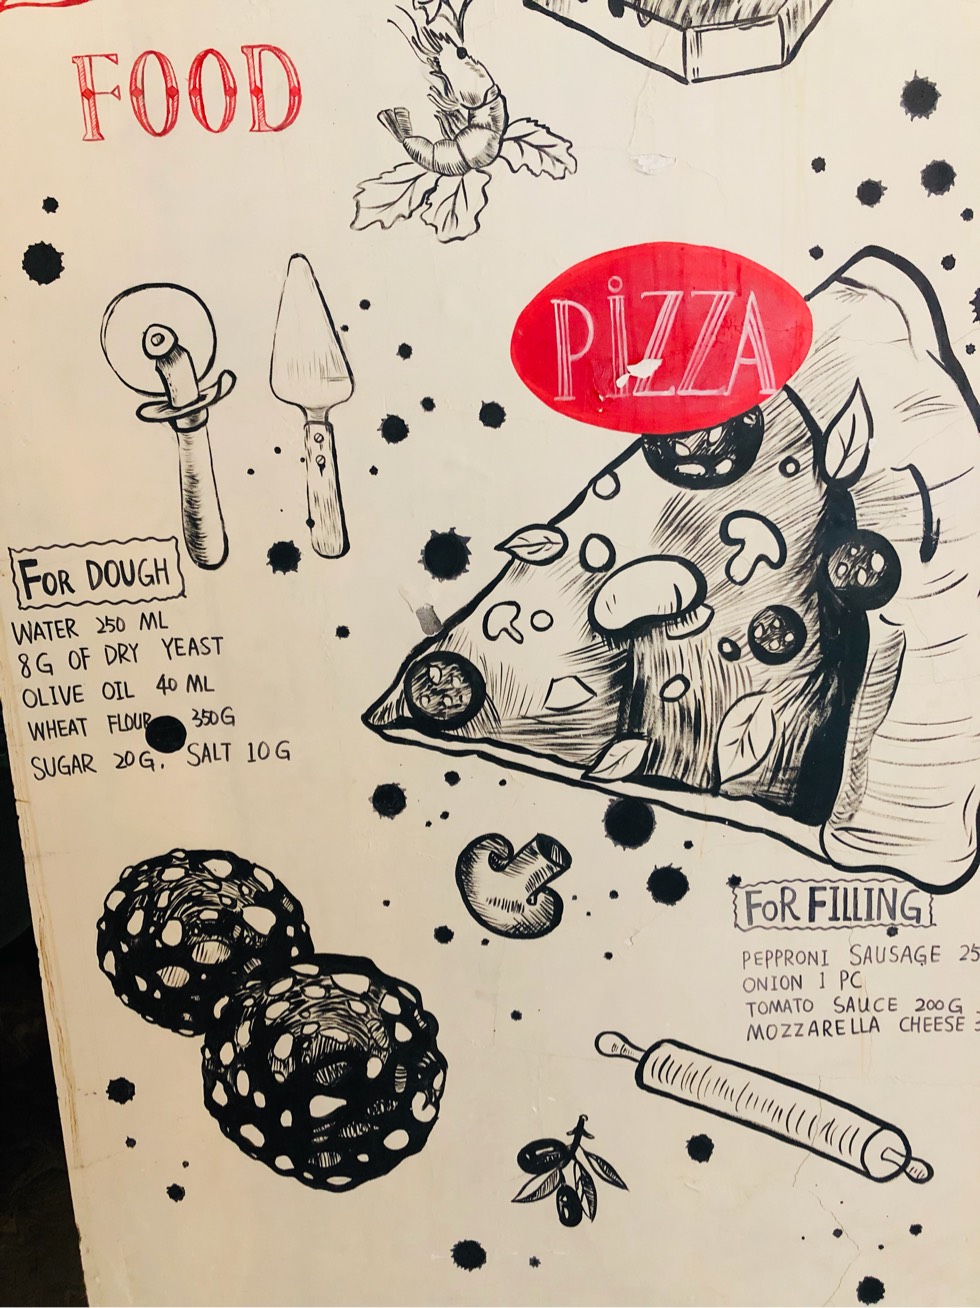 FOOD
PiZZA
FOR DOUGH
WATER 250 ML
8G OF DRY YEAST
OLIVE OIL 40 ML
WHEAT FLOUR 350G
SUGAR 20G. SALT 10G
FOR FILLING
PEPPRONI SAUSAGE
ONION 1 PC
TOMATO SAUCE 200G
MOZZARELLA CHEESE